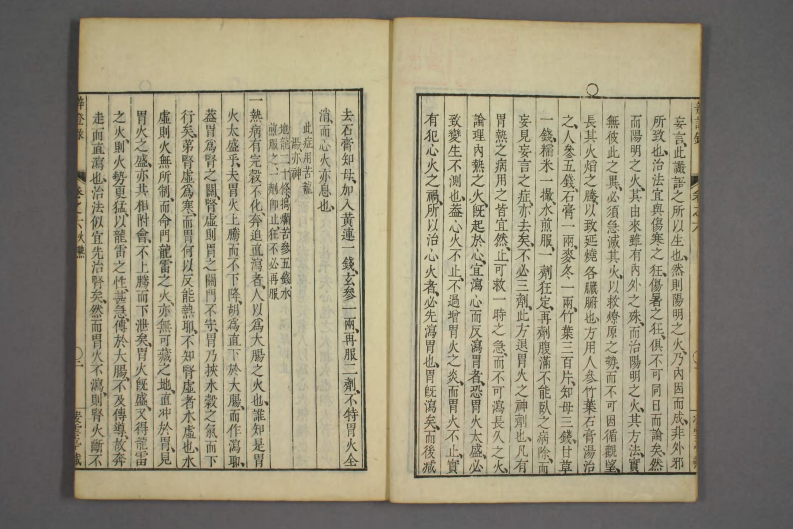 妄言此譫語之所以生也然則陽明之火乃內因而成非外邪
所致也治法宜與傷寒之狂傷暑之狂俱不可同日而論矣然
而陽明之火其由來雖有內外之殊而治陽明之火其方法實
無彼此之異必須急滅其火以救燎原之勢而不可因循觀望
長其火焰之騰以致延燒各臟腑也方用人參竹葉石膏湯治
之人參五錢石膏一兩麥冬一兩竹葉三百片知母三錢甘草
一錢糯米一撮水煎服一劑狂定再劑腹滿不能臥之病除而
妄見妄言之症亦去矣不必三劑此方退胃火之神劑也凡有
胃熱之病用之皆宜然止可救一時之急而不可瀉長久之火
論理內熱之火既起於心宜瀉心而反瀉胃者恐胃火太盛必
致變生不測也蓋心火不止不過增胃火之炎而胃火不止實
有犯心火之禍所以治心火者必先瀉胃也胃既瀉矣而後減
去石膏知母加入黃連一錢玄參一兩再服二劑不特胃火全
消而心火亦息也
此症用苦龍湯亦神
地龍二十條搗爛苦參五錢水煎服之一劑即止狂不必再服
一熱病有完穀不化奔迫直瀉者人以爲大腸之火也誰知是胃
火太盛乎夫胃火上騰而不下降胡爲直下於大腸而作瀉耶
蓋胃爲腎之關腎虛則胃之關門不守胃乃挾水穀之氣而下
行矣第腎虛爲寒而胃何以反能熱耶不知腎虛者水虛也水
虛則火無所制而命門龍雷之火亦無可藏之地直冲於胃見
胃火之盛亦共相附會不上騰而下泄矣胃火既盛又得龍雷
之火則火勢更猛以龍雷之性甚急傳於大腸不及傳導故奔
走而直瀉也治法似宜先治腎矣然而胃火不瀉則腎火斷不
卷之六